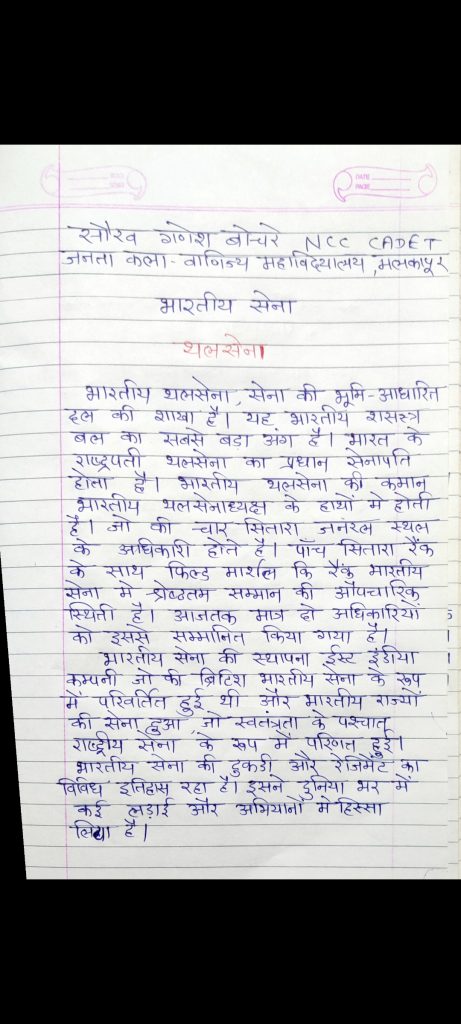 सौरव गणेश बोचरे NCC CADET
जनता कला - वाणिज्य महाविदयालय, मलकापूर
भारतीय सेना
थलसेना
भारतीय थलसेना, सेना की भूमि-आधारित
दल की शाखा है। यह भारतीय शसस्त्र
बल का सबसे बडा अंग है। भारत के
राष्ट्रपती थलसेना का प्रधान सेनापति
होता है। भारतीय थलसेना की कमान
भारतीय थलसेनाध्यक्ष के हाथों मे होती
है। जो की चार सितारा जनरल स्थल
के अधिकारि होते है। पाँच सितारा रैंक
के साथ फिल्ड मार्शल कि रैंक भारतीय
सेना मे श्रेष्ठतम सम्मान की औपचारिक
स्थिती है। आजतक मात्र दो अधिकारियों
को इससे सम्मानित किया गया है।
भारतीय सेना की स्थापना ईस्ट इंडीया
कम्पनी जो की ब्रिटिश भारतीय सेना के रूप
में परिवर्तित हुई थी और भारतीय राज्यों
की सेना हुआ, जो स्वतंत्रता के पश्चात
राष्ट्रीय सेना के रूप में परिणत हुई।
भारतीय सेना की टुकडी और रेजिमेंट का
विविध इतिहास रहा है। इसने दुनिया भर में
कई लड़ाई और अभियानों मे हिस्सा
लिया है।